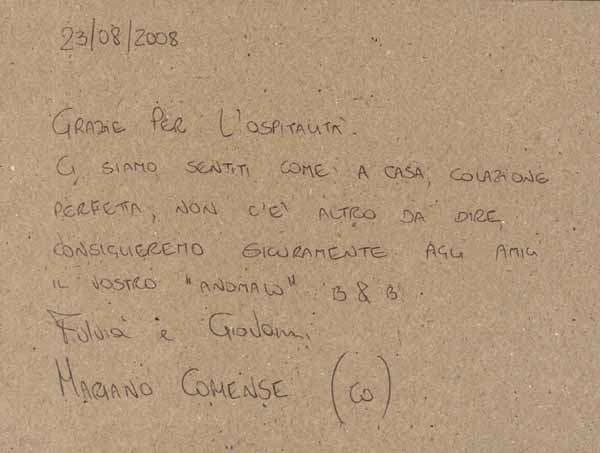 23/08/2008
GRAZIE PER L'OSPITALITÀ.
CI SIAMO SENTITI COME A CASA, COLAZIONE
PERFETTA, NON C'E' ALTRO DA DIRE,
CONSIGLIEREMO SICURAMENTE AGLI AMICI
IL VOSTRO "ANOMALO" B & B.
Fulvia e Giovanni
MARIANO COMENSE (CO)